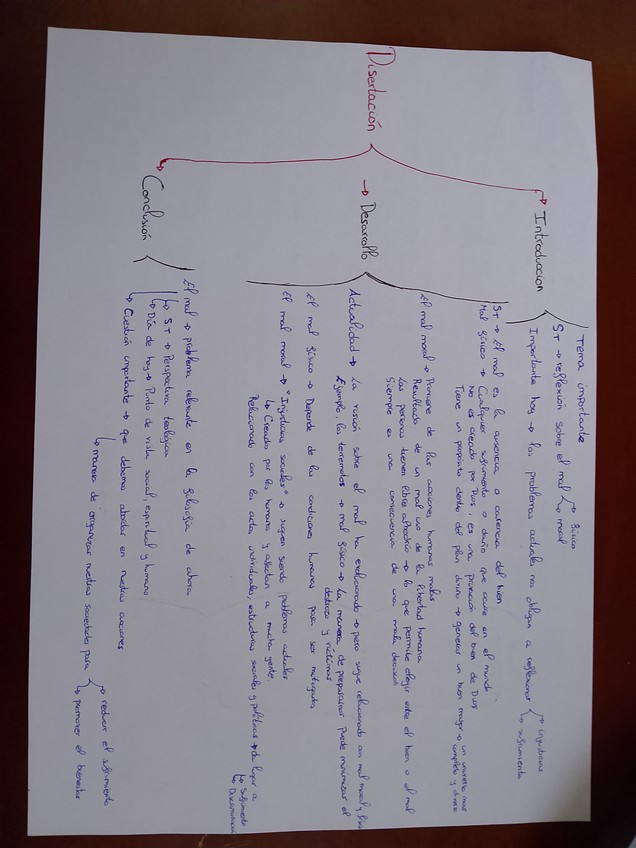 Disertación
→ Introducción
Tema importante
ST → reflexión sobre el mal → físico
→ moral
Importante hoy → los problemas actuales no obliga a reflexionar → injusticias
→ sufrimiento
→ Desarrollo
ST → El mal es la ausencia o carencia del bien
Mal físico → Cualquier sufrimiento o daño que ocurre en el mundo
No es creado por Dios, es una privación del bien de Dios
Tiene un propósito dentro del plan divino → generar un bien mayor → un universo más completo y diverso
El mal moral → Proviene de las acciones humanas malas
Resultado de un mal uso de la libertad humana
Las personas tienen libre albedrío → lo que permite elegir entre el bien o el mal
Siempre es una consecuencia de una mala decisión
Actualidad → La visión sobre el mal ha evolucionado → pero sigue relacionado con mal moral y físico
Ejemplo, los terremotos → mal físico → La manera de prepararse puede minimizar el
destrozo y víctimas
El mal físico → Depende de las condiciones humanas para ser mitigados
El mal moral → "Injusticias sociales" → siguen siendo problemas actuales
↳ Creados por los humanos y afectan a mucha gente
Relacionado con los actos individuales, estructuras sociales y políticas → da lugar a
↳ Sufrimiento
↳ Discriminación
→ Conclusión
El mal → problema relevante en la filosofía de ahora
↳ ST → Perspectiva teológica
↳ Día de hoy → Punto de vista social, espiritual y humano
↳ Cuestión importante → que debemos abordar en nuestras acciones
↳ manera de organizar nuestras sociedades para → reducir el sufrimiento
↳ promover el bienestar